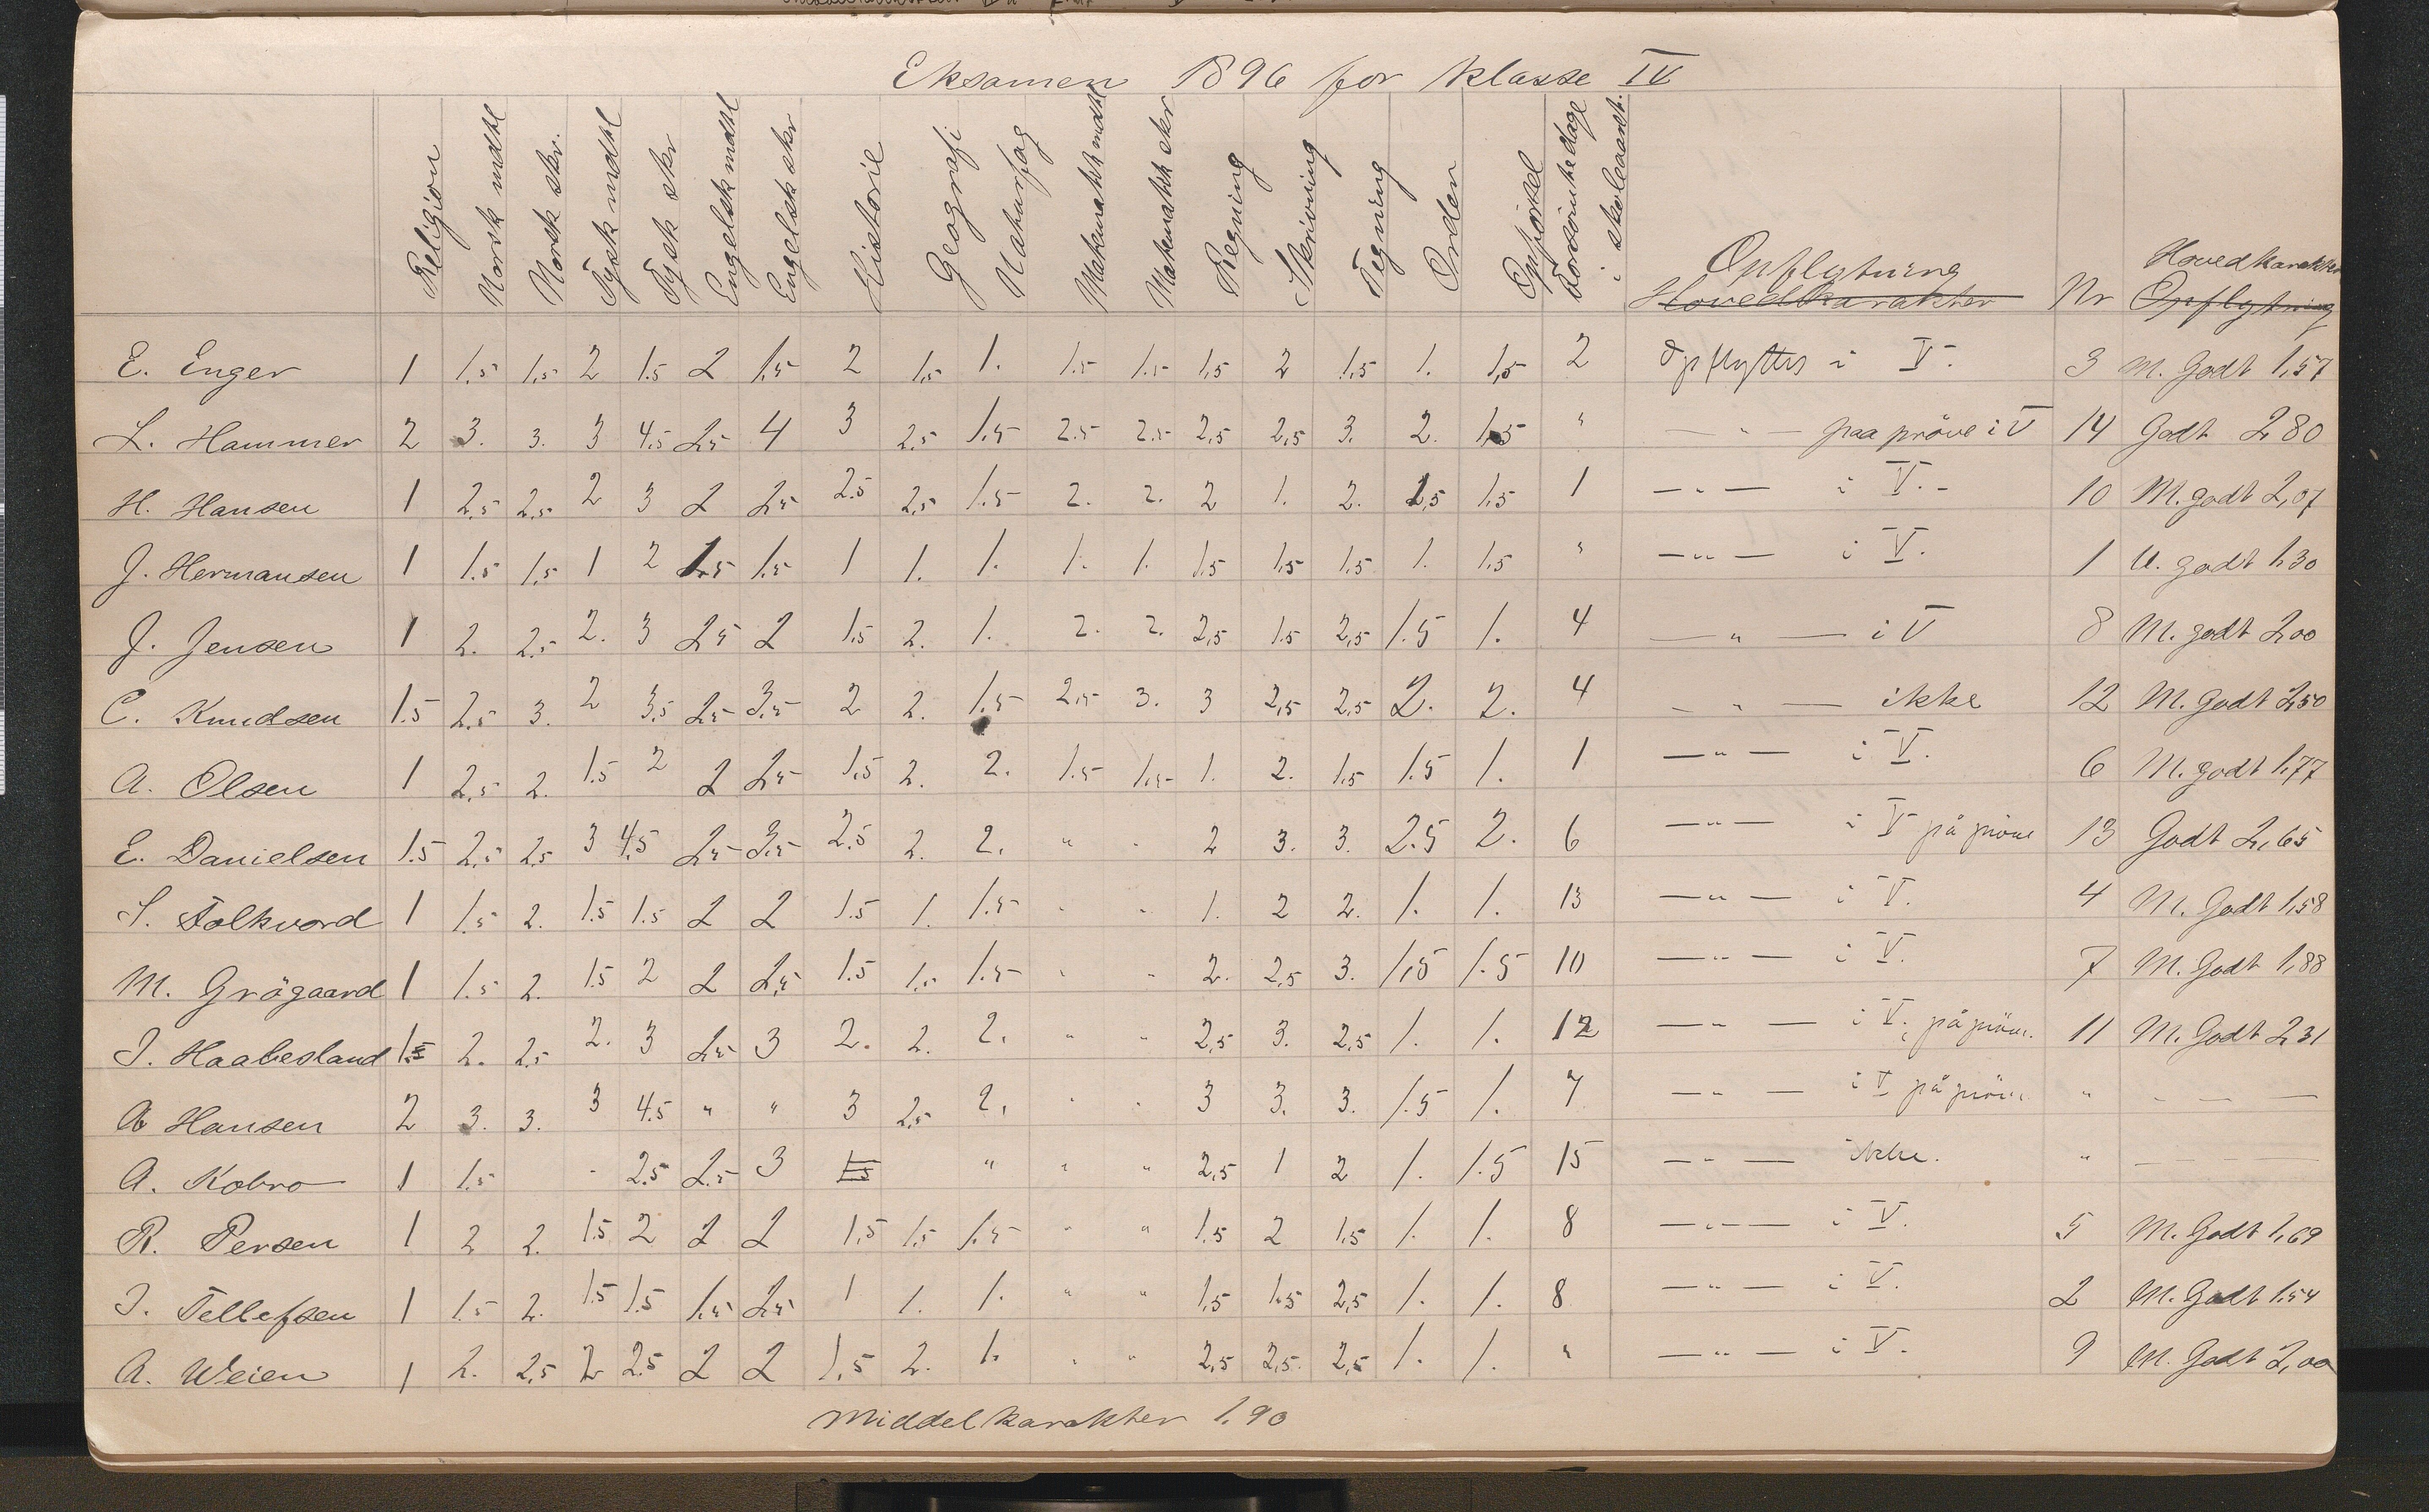 Eksamen 1896 for klasse IV
Religion Norsk mdtl Norsk skr. Tysk mdtl Tysk skr Engelsk mdtl Engelsk skr Historie Geografi Naturfag Matematik mdtl Matematik skr Regning Skrivning Tegning Orden Opförsel Forsömte dage i skoleaaret. Opflytning Hovedkarakter Nr Hovedkarakter Opflytning
E. Enger 1 1.5 1,5 2 1.5 2 1.5 2 1,5 1. 1.5 1.5 1,5 2 1.5 1. 1,5 2 Opflyttes i V. 3 M. Godt 1,57
L. Hammer 2 3. 3. 3 4.5 2.5 4 3 2.5 1.5 2.5 2.5 2,5 2,5 3. 2. 1.5 " — " — paa pröve i V 14 Godt 2,80
H. Hansen 1 2,5 2,5 2 3 2 2.5 2.5 2,5 1.5 2. 2. 2 1. 2. 1,5 1,5 1 — " — i V. 10 M. godt 2,07
J. Hermansen 1 1.5 1,5 1 2 1.5 1.5 1 1. 1. 1. 1. 1,5 1,5 1.5 1. 1,5 " — " — i V. 1 U. godt 1.30
J. Jensen 1 2. 2.5 2. 3 2.5 2 1.5 2. 1. 2. 2. 2,5 1.5 2,5 1.5 1. 4 — " — i V 8 M. godt 2,00
C. Knudsen 1.5 2.5 3. 2 3,5 2.5 3.5 2 2. 1.5 2.5 3. 3 2,5 2,5 2. 2. 4 — " — ikke 12 M. godt 2,50
A. Olsen 1 2,5 2. 1.5 2 2 2.5 1,5 2. 2. 1.5 1,5 1. 2. 1.5 1.5 1. 1 — " — i V. 6 M. godt 1,77
E. Danielsen 1.5 2,5 2,5 3 4,5 2.5 3.5 2.5 2. 2. " " 2 3. 3. 2.5 2. 6 — " — i V på pröve 13 Godt 2,65
S. Folkvord 1 1.5 2. 1.5 1.5 2 2 1.5 1. 1.5 " " 1. 2 2. 1. 1. 13 — " — i V. 4 M. Godt 1,58
M. Grögaard 1 1.5 2. 1.5 2 2 2,5 1.5 1.5 1.5 " " 2. 2,5 3. 1,5 1.5 10 — " — i V. 7 M. Godt 1,88
J. Haabesland 1.5 2. 2.5 2. 3 2.5 3 2. 2. 2. " " 2,5 3. 2,5 1. 1. 12 — " — i V. på pröve. 11 M. Godt 2,31
A Hansen 2 3. 3. 3 4.5 " " 3 2,5 2. " " 3 3. 3. 1.5 1. 7 — " — i V på pröve " — — —
A. Kobro 1 1.5 " 2.5 2.5 3 1.5 " " " 2,5 1 2 1. 1.5 15 — " — ikke. " — — —
R. Persen 1 2 2. 1.5 2 2 2 1,5 1.5 1.5 " " 1.5 2 1,5 1. 1. 8 — " — i V. 5 M. Godt 1,69
J. Tellefsen 1 1.5 2. 1.5 1.5 1.5 2.5 1 1. 1. " " 1,5 1.5 2,5 1. 1. 8 — " — i V. 2 M. Godt 1.54
A. Weien 1 2. 2,5 2 2.5 2 2 1,5 2. 1. " " 2,5 2,5. 2,5 1. 1. " — " — i V. 9 M. Godt 2,00
Middelkarakter 1,90